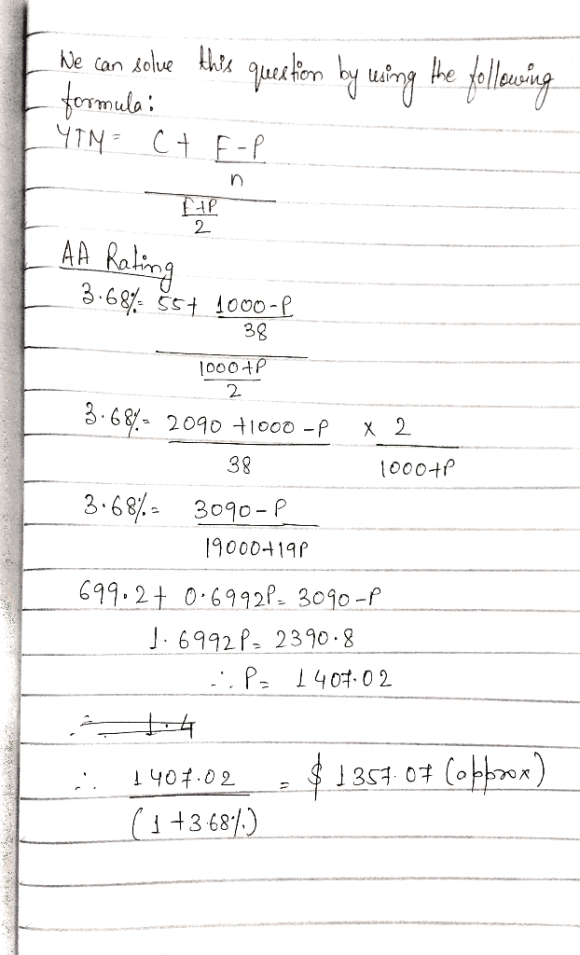 We can solve this question by using the following
formula:
YTM = C + F-P
n
F+P
2
AA Rating
3.68% = 55 + 1000-P
38
1000+P
2
3.68% = 2090 + 1000 - P x 2
38 1000+P
3.68% = 3090 - P
19000+19P
699.2 + 0.6992P = 3090 - P
1.6992P = 2390.8
∴ P = 1407.02
∴ 1407.02 = $ 1357.07 (approx)
(1 + 3.68%)